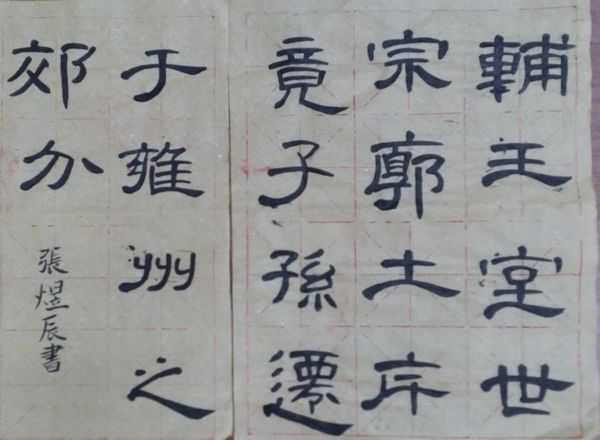 輔王室世
宗廓土斥
竟子孫遷
于雍州之
郊分
張煜辰書